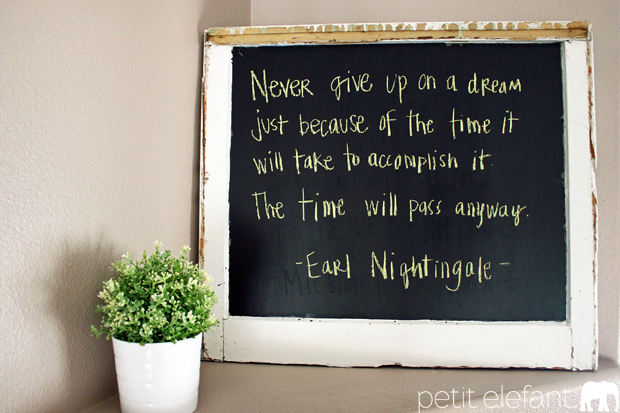 Never give up on a dream
just because of the time it
will take to accomplish it.
The time will pass anyway.
-Earl Nightingale-
petit elefant